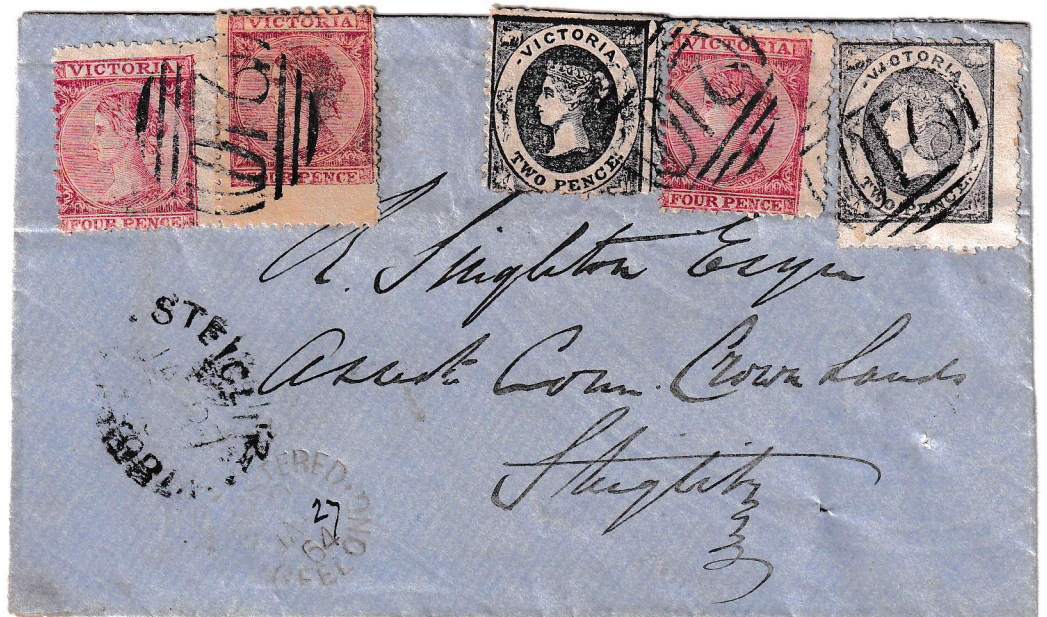 VICTORIA
FOUR PENCE
VICTORIA
PENCE
VICTORIA
TWO PENCE.
VICTORIA
FOUR PENCE
VICTORIA
TWO PENCE.
R. Singleton Esqre
Assist. Com. Crown Lands
Stieglitz
STEIGLITZ
VICTORIA
TERED
27
64
GEELONG